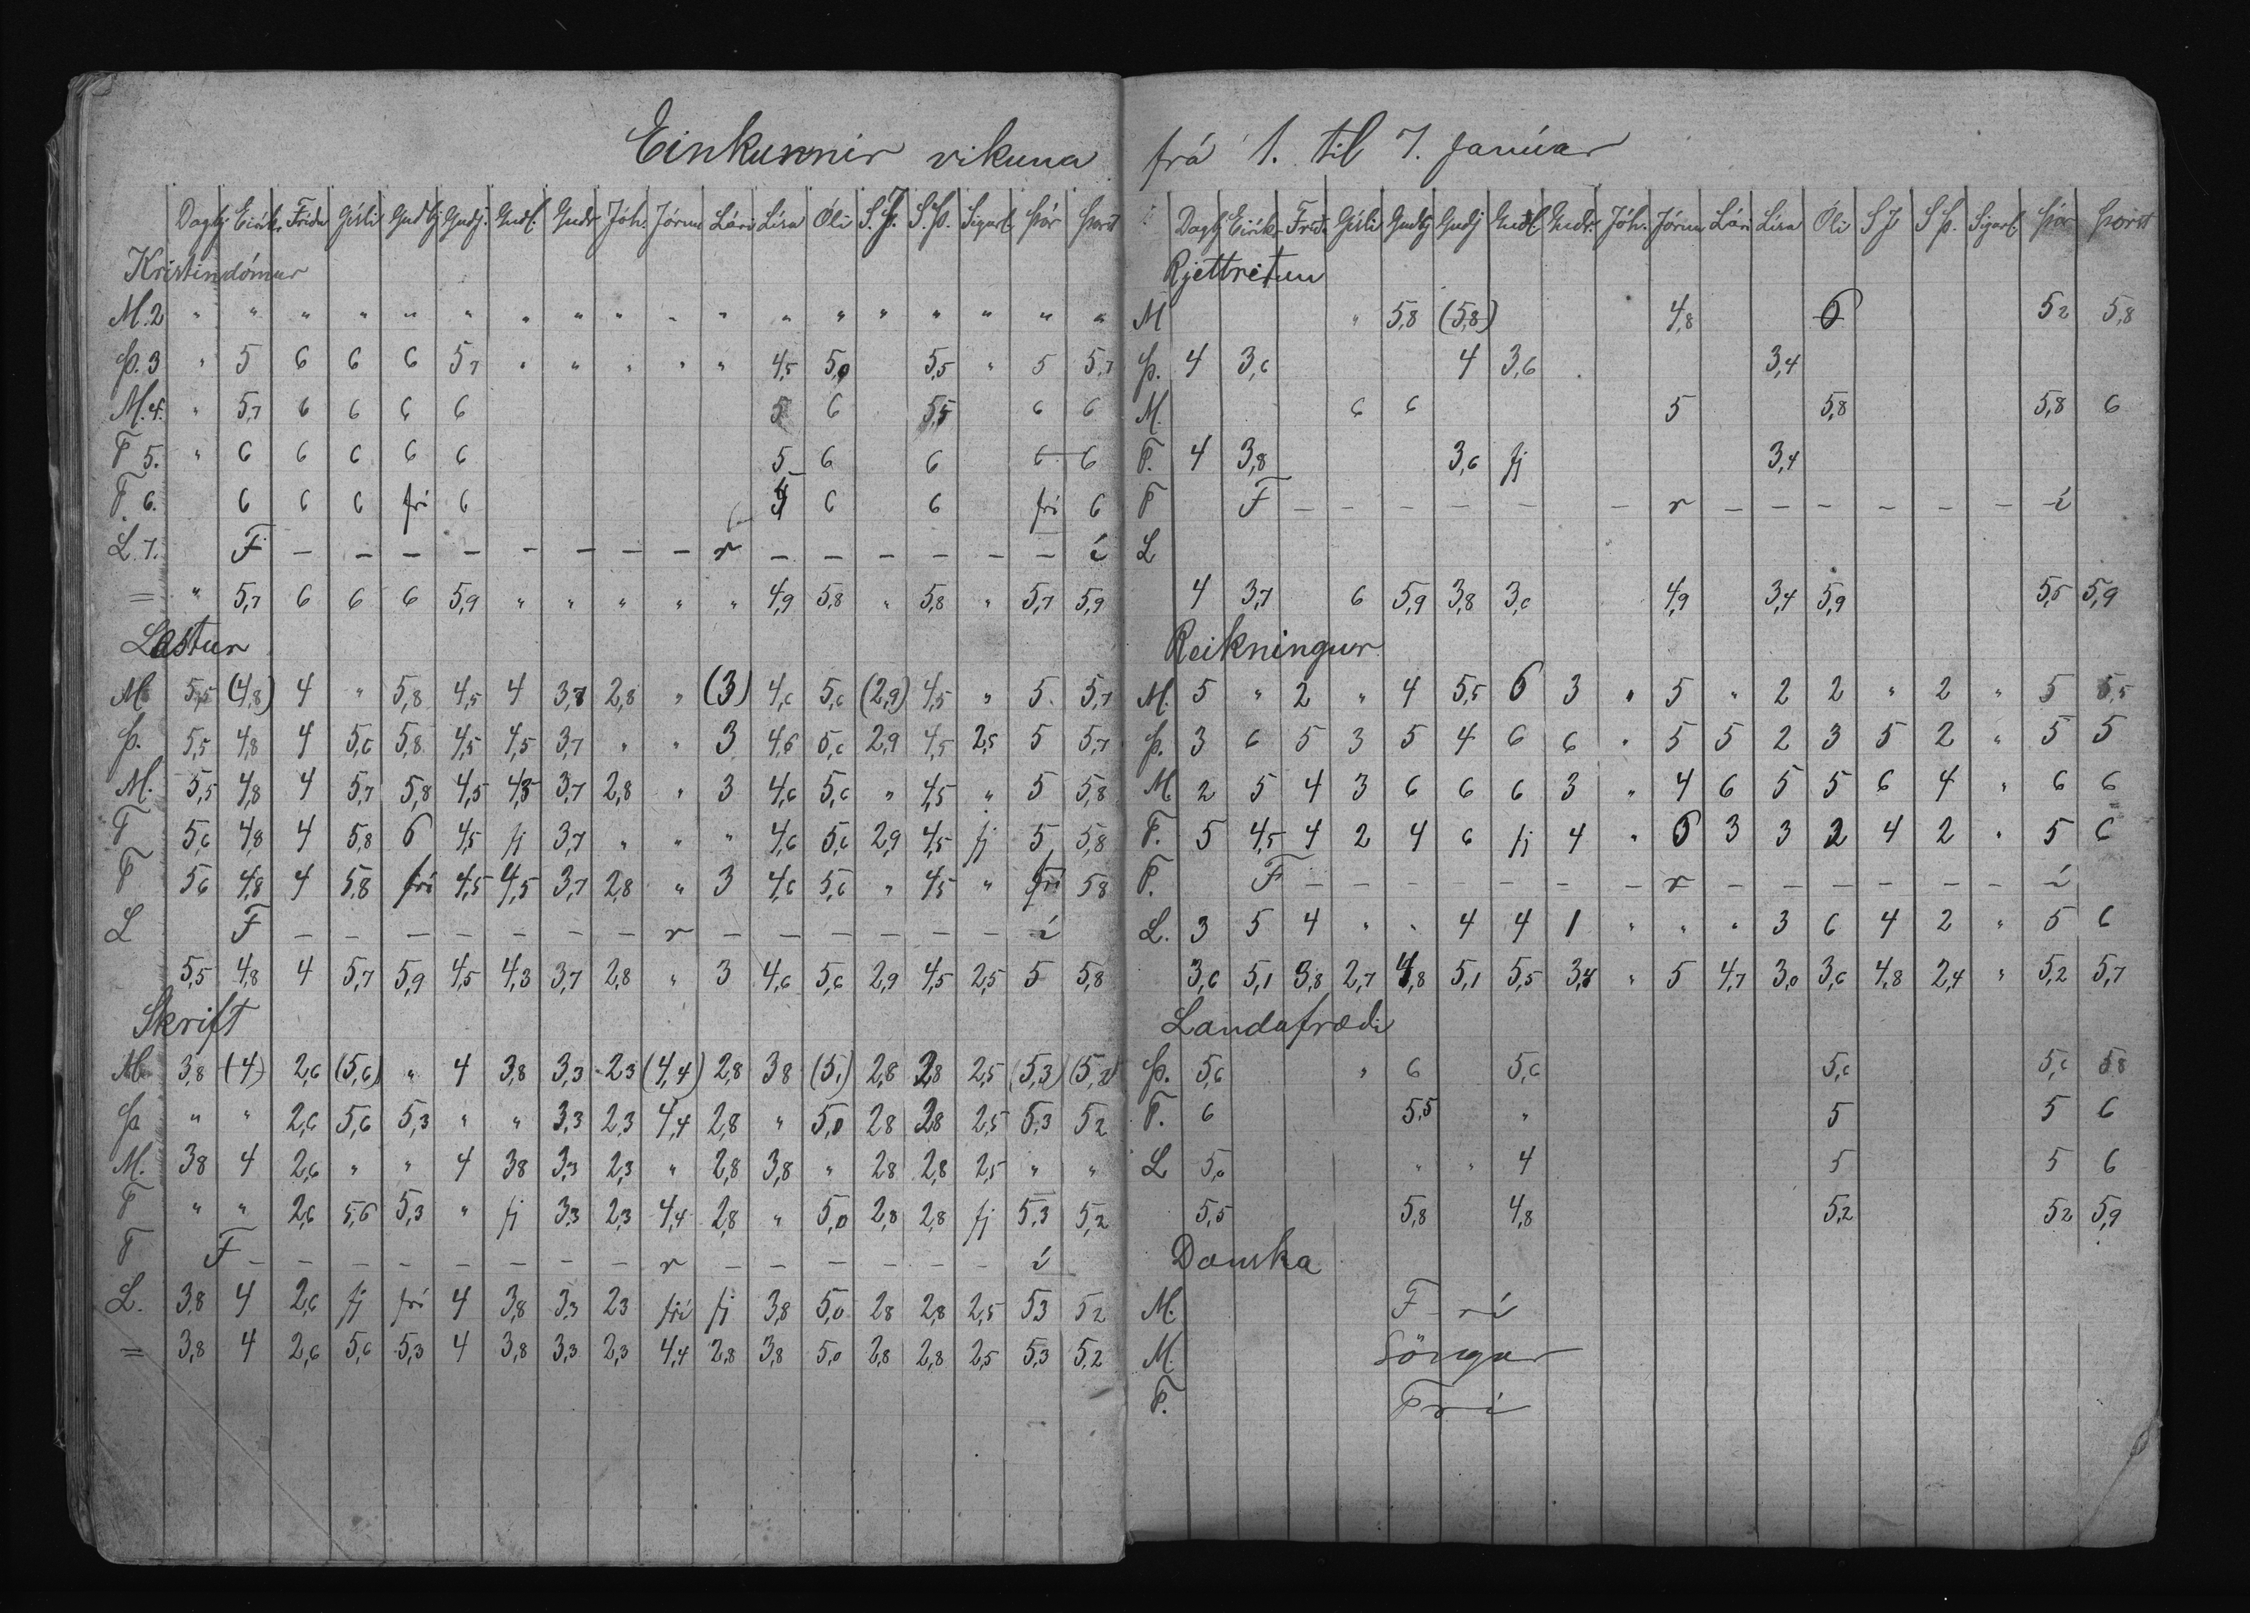 Einkunnir vikuna
Dagbj Eirík. Frida Gísli Gudbj Gudj. Gudl. Gudr Jóh. Jórun Lári Lísa Óli S.J. S.Þ. Sigurl. Þór Þorst
Kristindómur
M. 2 " " " " " " " " " " " " " " " " " "
Þ. 3 " 5 6 6 6 5,7 " " " " " 4,5 5,0 5,5 " 5 5,7
M. 4. " 5,7 6 6 6 6 5 6 5,5 6 6
F 5. " 6 6 6 6 6 5 6 6 6 6
F 6. 6 6 6 frí 6 6 6 frí 6
L. 7. F – – – – – – – – r – – – – – – í
= " 5,7 6 6 6 5,9 " " " " " 4,9 5,8 " 5,8 " 5,7 5,9
Lestur
M 5,5 (4,8) 4 " 5,8 4,5 4 3,7 2,8 " (3) 4,6 5,6 (2,9) 4,5 " 5 5,7
Þ. 5,5 4,8 4 5,6 5,8 4,5 4,5 3,7 " " 3 4,6 5,6 2,9 4,5 2,5 5 5,7
M. 5,5 4,8 4 5,7 5,8 4,5 4,5 3,7 2,8 " 3 4,6 5,6 " 4,5 " 5 5,8
F 5,6 4,8 4 5,8 6 4,5 fj 3,7 " " " 4,6 5,6 2,9 4,5 fj 5 5,8
F 5,6 4,8 4 5,8 frí 4,5 4,5 3,7 2,8 " 3 4,6 5,6 " 4,5 " frí 5,8
L F – – – – – – – r – – – – – – í
5,5 4,8 4 5,7 5,9 4,5 4,3 3,7 2,8 " 3 4,6 5,6 2,9 4,5 2,5 5 5,8
Skrift
M 3,8 (4) 2,6 (5,6) " 4 3,8 3,3 2,3 (4,4) 2,8 3,8 (5,) 2,8 2,8 2,5 (5,3) (5,2)
Þ " " 2,6 5,6 5,3 " " 3,3 2,3 4,4 2,8 " 5,0 2,8 2,8 2,5 5,3 5,2
M. 3,8 4 2,6 " " 4 3,8 3,3 2,3 " 2,8 3,8 " 2,8 2,8 2,5 " "
F " " 2,6 5,6 5,3 " fj 3,3 2,3 4,4 2,8 " 5,0 2,8 2,8 fj 5,3 5,2
F F – – – – – – – – r – – – – – – í
L. 3,8 4 2,6 fj frí 4 3,8 3,3 2,3 frí fj 3,8 5,0 2,8 2,8 2,5 5,3 5,2
= 3,8 4 2,6 5,6 5,3 4 3,8 3,3 2,3 4,4 2,8 3,8 5,0 2,8 2,8 2,5 5,3 5,2
frá 1. til 7. Janúar
Dagbj Eirík. Frida Gísli Gudbj Gudj Gudl. Gudr. Jóh. Jórun Lári Lísa Óli S J S Þ. Sigurl. Þór Þorst
Rjettritun
M " 5,8 (5,8) 4,8 6 5,2 5,8
Þ. 4 3,6 4 3,6 3,4
M. 6 6 5 5,8 5,8 6
F. 4 3,8 3,6 fj 3,4
F F – – – – – – – r – – – – – – – í
L
4 3,7 6 5,9 3,8 3,6 4,9 3,4 5,9 5,5 5,9
Reikningur
M. 5 " 2 " 4 5,5 6 3 " 5 " 2 2 " 2 " 5 5,5
Þ. 3 6 5 3 5 4 6 6 " 5 5 2 3 5 2 " 5 5
M 2 5 4 3 6 6 6 3 " 4 6 5 5 6 4 " 6 6
F. 5 4,5 4 2 4 6 fj 4 " 6 3 3 2 4 2 " 5 6
F. F – – – – – – – r – – – – – – – í
L. 3 5 4 " " 4 4 1 " " " 3 6 4 2 " 5 6
3,6 5,1 3,8 2,7 4,8 5,1 5,5 3,4 " 5 4,7 3,0 3,6 4,8 2,4 " 5,2 5,7
Landafrædi
Þ. 5,6 " 6 5,6 5,6 5,6 5,8
F. 6 5,5 " 5 5 6
L 5,0 " " 4 5 5 6
5,5 5,8 4,8 5,2 5,2 5,9
Danska
M. Frí
M. Söngur
F. Frí